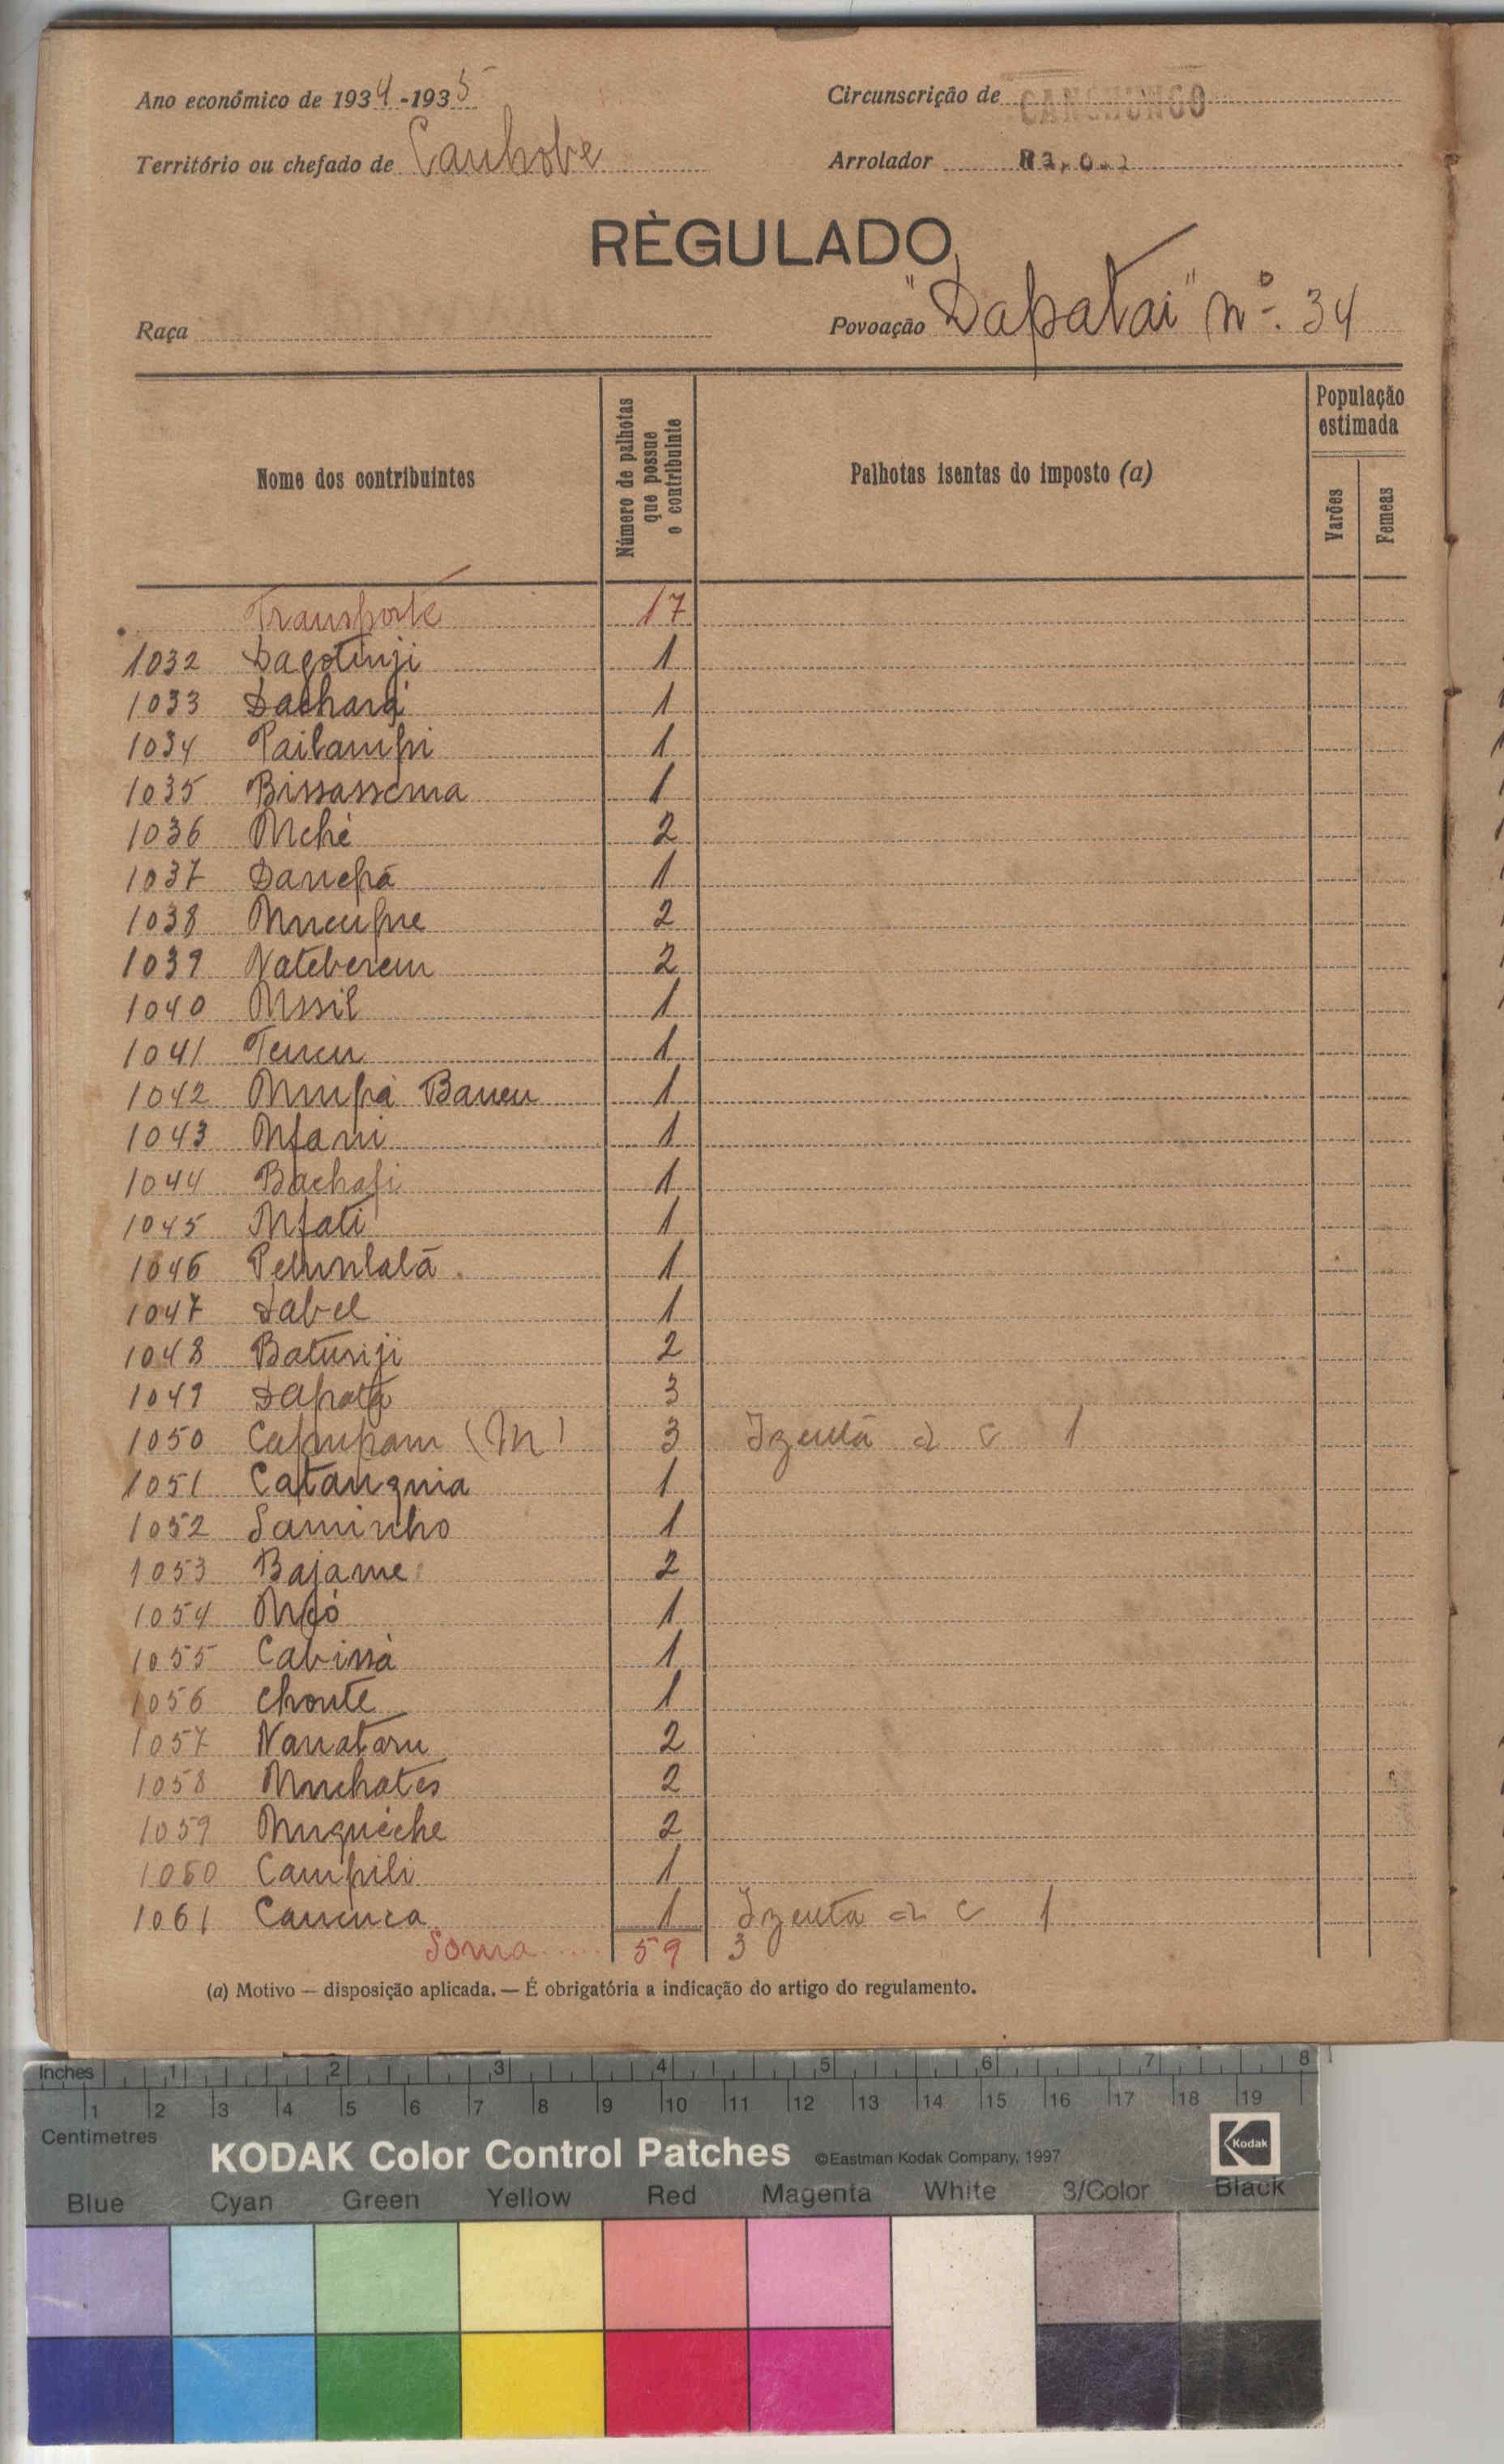 Ano económico de 1934-1935
Circunscrição de CANCHUNGO
Território ou chefado de Canhobe
Arrolador
RÈGULADO
Raça
Povoação "Dapatai" nº. 34
Nome dos contribuintes
Número de palhotas que possue o contribuinte
Palhotas isentas do imposto (a)
População estimada
Varões
Femeas
Transporte 17
1032 Dagotinji 1
1033 Dachará 1
1034 Pailampi 1
1035 Bissassema 1
1036 Mché 2
1037 Danepá 1
1038 2
1039 Nateberem 2
1040 Mssil 1
1041 1
1042 1
1043 Mfani 1
1044 Bachafi 1
1045 Mfati 1
1046 1
1047 Dabel 1
1048 Baturiji 2
1049 Dapatá 3
1050 Capupam (M) 3 Izenta a c 1
1051 Catanguia 1
1052 Saminho 1
1053 Bajame 2
1054 1
1055 Cabissà 1
1056 Choute 1
1057 2
1058 Muchates 2
1059 Muguéche 2
1060 Campili 1
1061 1 Izenta a c 1
Soma 59 3
(a) Motivo — disposição aplicada. — É obrigatória a indicação do artigo do regulamento.
Inches 1 2 3 4 5 6 7 8
1 2 3 4 5 6 7 8 9 10 11 12 13 14 15 16 17 18 19
Centimetres
KODAK Color Control Patches ©Eastman Kodak Company, 1997 Kodak
Blue Cyan Green Yellow Red Magenta White 3/Color Black